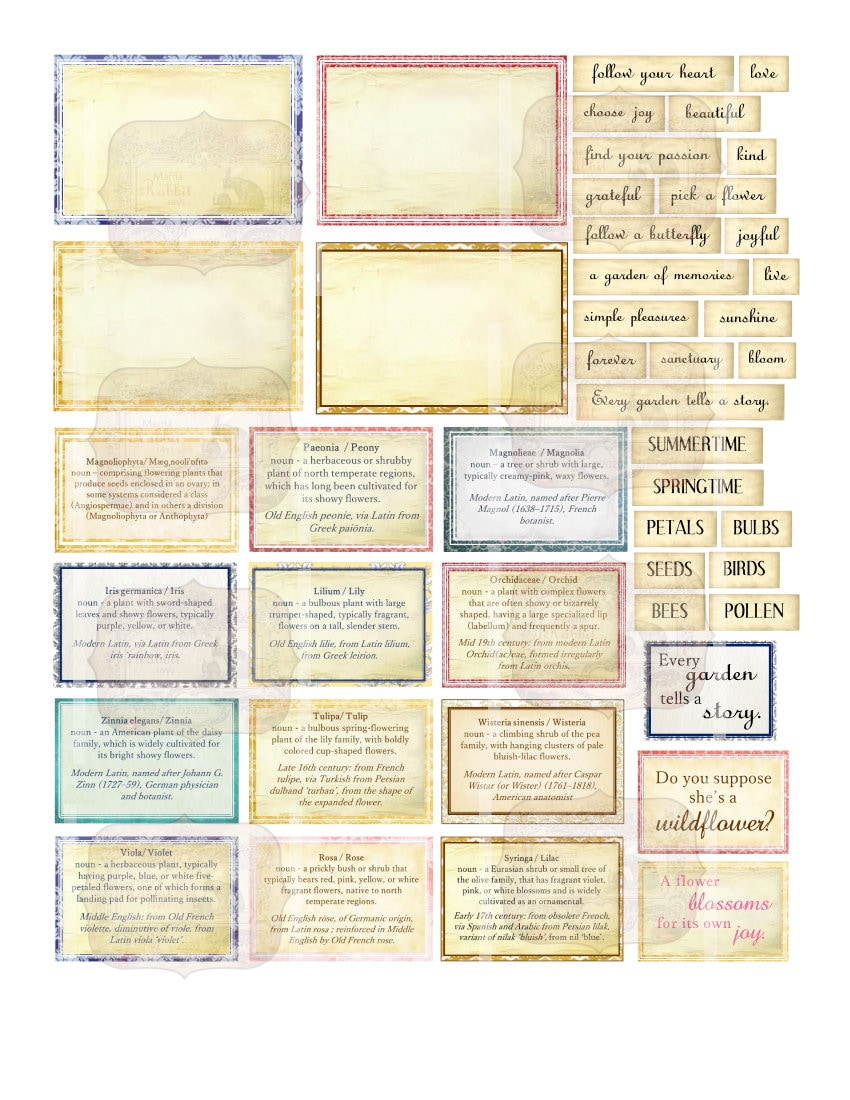 Mama
Rabbit
follow your heart
love
choose joy
beautiful
find your passion
kind
grateful
pick a flower
follow a butterfly
joyful
a garden of memories
live
simple pleasures
sunshine
forever
sanctuary
bloom
Every garden tells a story.
Magnoliophyta/
noun - comprising flowering plants that
produce seeds enclosed in an ovary; in
some systems considered a class
(Angiospermae) and in others a division
(Magnoliophyta or Anthophyta)
Paeonia / Peony
noun - a herbaceous or shrubby
plant of north temperate regions,
which has long been cultivated for
its showy flowers.
Old English peonie, via Latin from
Greek paiōnia.
Magnolieae / Magnolia
noun – a tree or shrub with large,
typically creamy-pink, waxy flowers.
Modern Latin, named after Pierre
Magnol (1638–1715), French
botanist.
SUMMERTIME
SPRINGTIME
PETALS
BULBS
SEEDS
BIRDS
BEES
POLLEN
Iris germanica / Iris
noun - a plant with sword-shaped
leaves and showy flowers, typically
purple, yellow, or white.
Modern Latin, via Latin from Greek
iris ‘rainbow, iris.
Lilium / Lily
noun - a bulbous plant with large
trumpet-shaped, typically fragrant,
flowers on a tall, slender stem.
Old English lilie, from Latin lilium,
from Greek leirion.
Orchidaceae / Orchid
noun - a plant with complex flowers
that are often showy or bizarrely
shaped, having a large specialized lip
(labellum) and frequently a spur.
Mid 19th century: from modern Latin
Orchid(ac)eae, formed irregularly
from Latin orchis.
Every
garden
tells a
story.
Zinnia elegans/ Zinnia
noun - an American plant of the daisy
family, which is widely cultivated for
its bright showy flowers.
Modern Latin, named after Johann G.
Zinn (1727–59), German physician
and botanist.
Tulipa/ Tulip
noun - a bulbous spring-flowering
plant of the lily family, with boldly
colored cup-shaped flowers.
Late 16th century: from French
tulipe, via Turkish from Persian
dulband ‘turban’, from the shape of
the expanded flower.
Wisteria sinensis / Wisteria
noun - a climbing shrub of the pea
family, with hanging clusters of pale
bluish-lilac flowers.
Modern Latin, named after Caspar
Wistar (or Wister) (1761–1818),
American anatomist
Do you suppose
she's a
wildflower?
Viola/ Violet
noun - a herbaceous plant, typically
having purple, blue, or white five-
petaled flowers, one of which forms a
landing pad for pollinating insects.
Middle English: from Old French
violette, diminutive of viole, from
Latin viola ‘violet’.
Rosa / Rose
noun - a prickly bush or shrub that
typically bears red, pink, yellow, or white
fragrant flowers, native to north
temperate regions.
Old English rōse, of Germanic origin,
from Latin rosa ; reinforced in Middle
English by Old French rose.
Syringa / Lilac
noun - a Eurasian shrub or small tree of
the olive family, that has fragrant violet,
pink, or white blossoms and is widely
cultivated as an ornamental.
Early 17th century: from obsolete French,
via Spanish and Arabic from Persian lilak,
variant of nilak ‘bluish’, from nil ‘blue’.
A flower
blossoms
for its own
joy.